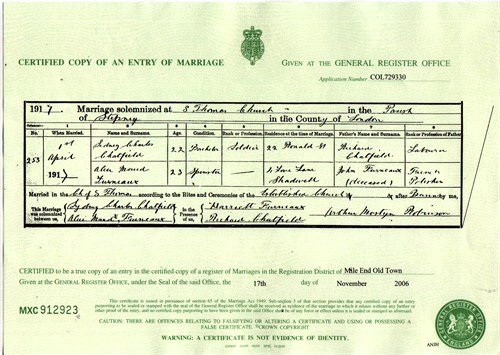 CERTIFIED COPY OF AN ENTRY OF MARRIAGE
GIVEN AT THE GENERAL REGISTER OFFICE
Application Number COL729330
1917. Marriage solemnized at S Thomas Church in the Parish
of Stepney in the County of London
No. When Married. Name and Surname. Age. Condition. Rank or Profession. Residence at the time of Marriage. Father's Name and Surname. Rank or Profession of Father
253 1st April 1917 Sidney Charles Chatfield 22 Bachelor Soldier 22 Ronald St Richard Chatfield Labourer
Alice Maud Furneaux 23 Spinster Love Lane Shadwell John Furneaux (deceased) Polisher
Married in the Ch of S Thomas according to the Rites and Ceremonies of the Established Church after Banns by me,
This Marriage was solemnized between us, Sydney Charles Chatfield Alice Maud Furneaux in the Presence of us, Harriett Furneaux Richard Chatfield Arthur Mostyn Robinson
CERTIFIED to be a true copy of an entry in the certified copy of a register of Marriages in the Registration District of Mile End Old Town
Given at the GENERAL REGISTER OFFICE, under the Seal of the said Office, the 17th day of November 2006
MXC 912923
This certificate is issued in pursuance of section 65 of the Marriage Act 1949. Sub-section 3 of that section provides that any certified copy of an entry
purporting to be sealed or stamped with the seal of the General Register Office shall be received as evidence of the marriage to which it relates without any further or
other proof of the entry, and no certified copy purporting to have been given in the said Office shall be of any force or effect unless it is sealed or stamped as aforesaid.
CAUTION: THERE ARE OFFENCES RELATING TO FALSIFYING OR ALTERING A CERTIFICATE AND USING OR POSSESSING A
FALSE CERTIFICATE. ©CROWN COPYRIGHT
WARNING: A CERTIFICATE IS NOT EVIDENCE OF IDENTITY.
GENERAL REGISTER OFFICE
ENGLAND